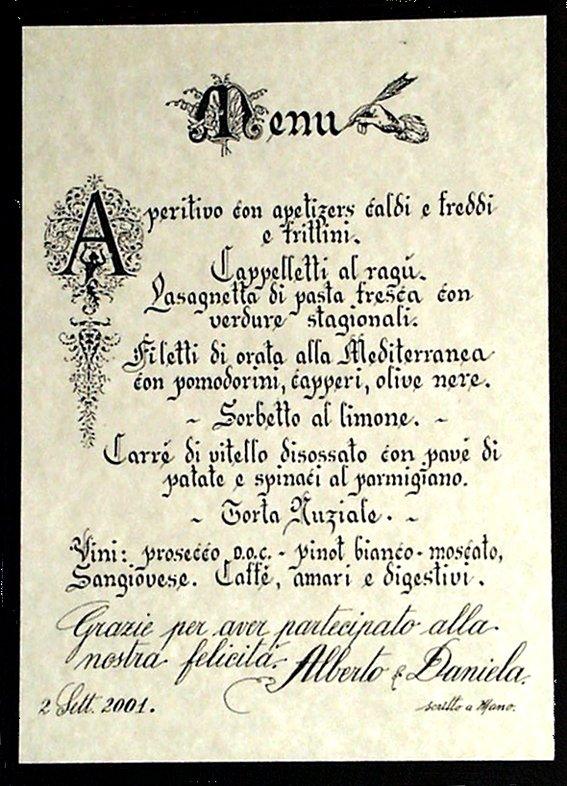 Menu
Aperitivo con apetizers caldi e freddi
e frittini.
Cappelletti al ragù.
Lasagnetta di pasta fresca con
verdure stagionali.
Filetti di orata alla Mediterranea
con pomodorini, capperi, olive nere.
~ Sorbetto al limone. ~
Carré di vitello disossato con pavé di
patate e spinaci al parmigiano.
~ Torta Nuziale. ~
Vini: prosecco D.O.C. - pinot bianco - moscato,
Sangiovese. Caffé, amari e digestivi.
Grazie per aver partecipato alla
nostra felicità. Alberto & Daniela.
2 Sett. 2001. scritto a Mano.